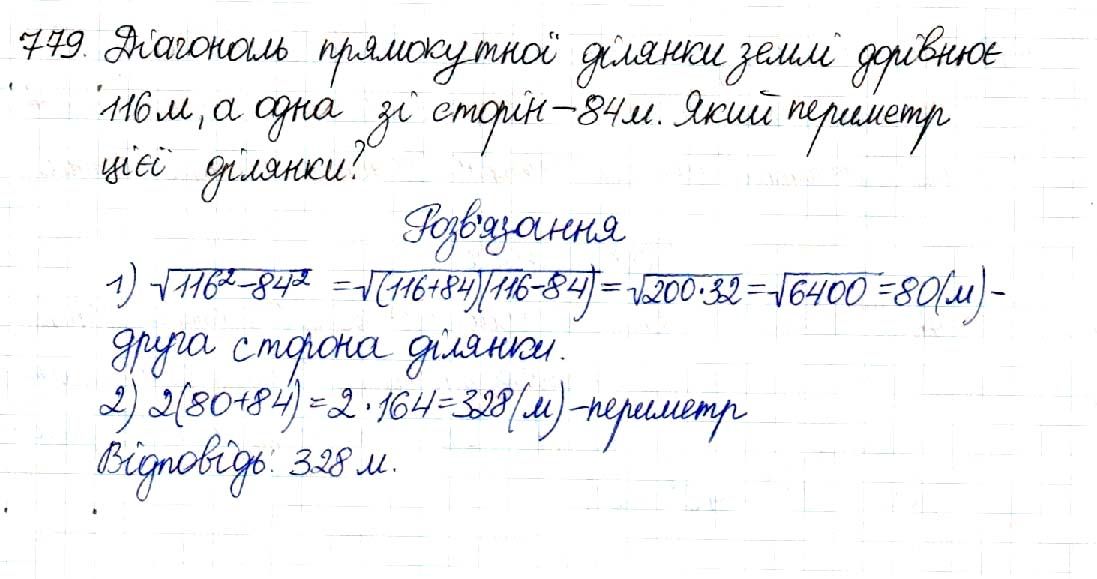 779. Діагональ прямокутної ділянки землі дорівнює
116 м, а одна зі сторін – 84 м. Який периметр
цієї ділянки?
Розв'язання
1) √116²-84² = √(116+84)(116-84) = √200·32 = √6400 = 80(м) –
друга сторона ділянки.
2) 2(80+84) = 2·164 = 328(м) – периметр
Відповідь: 328 м.